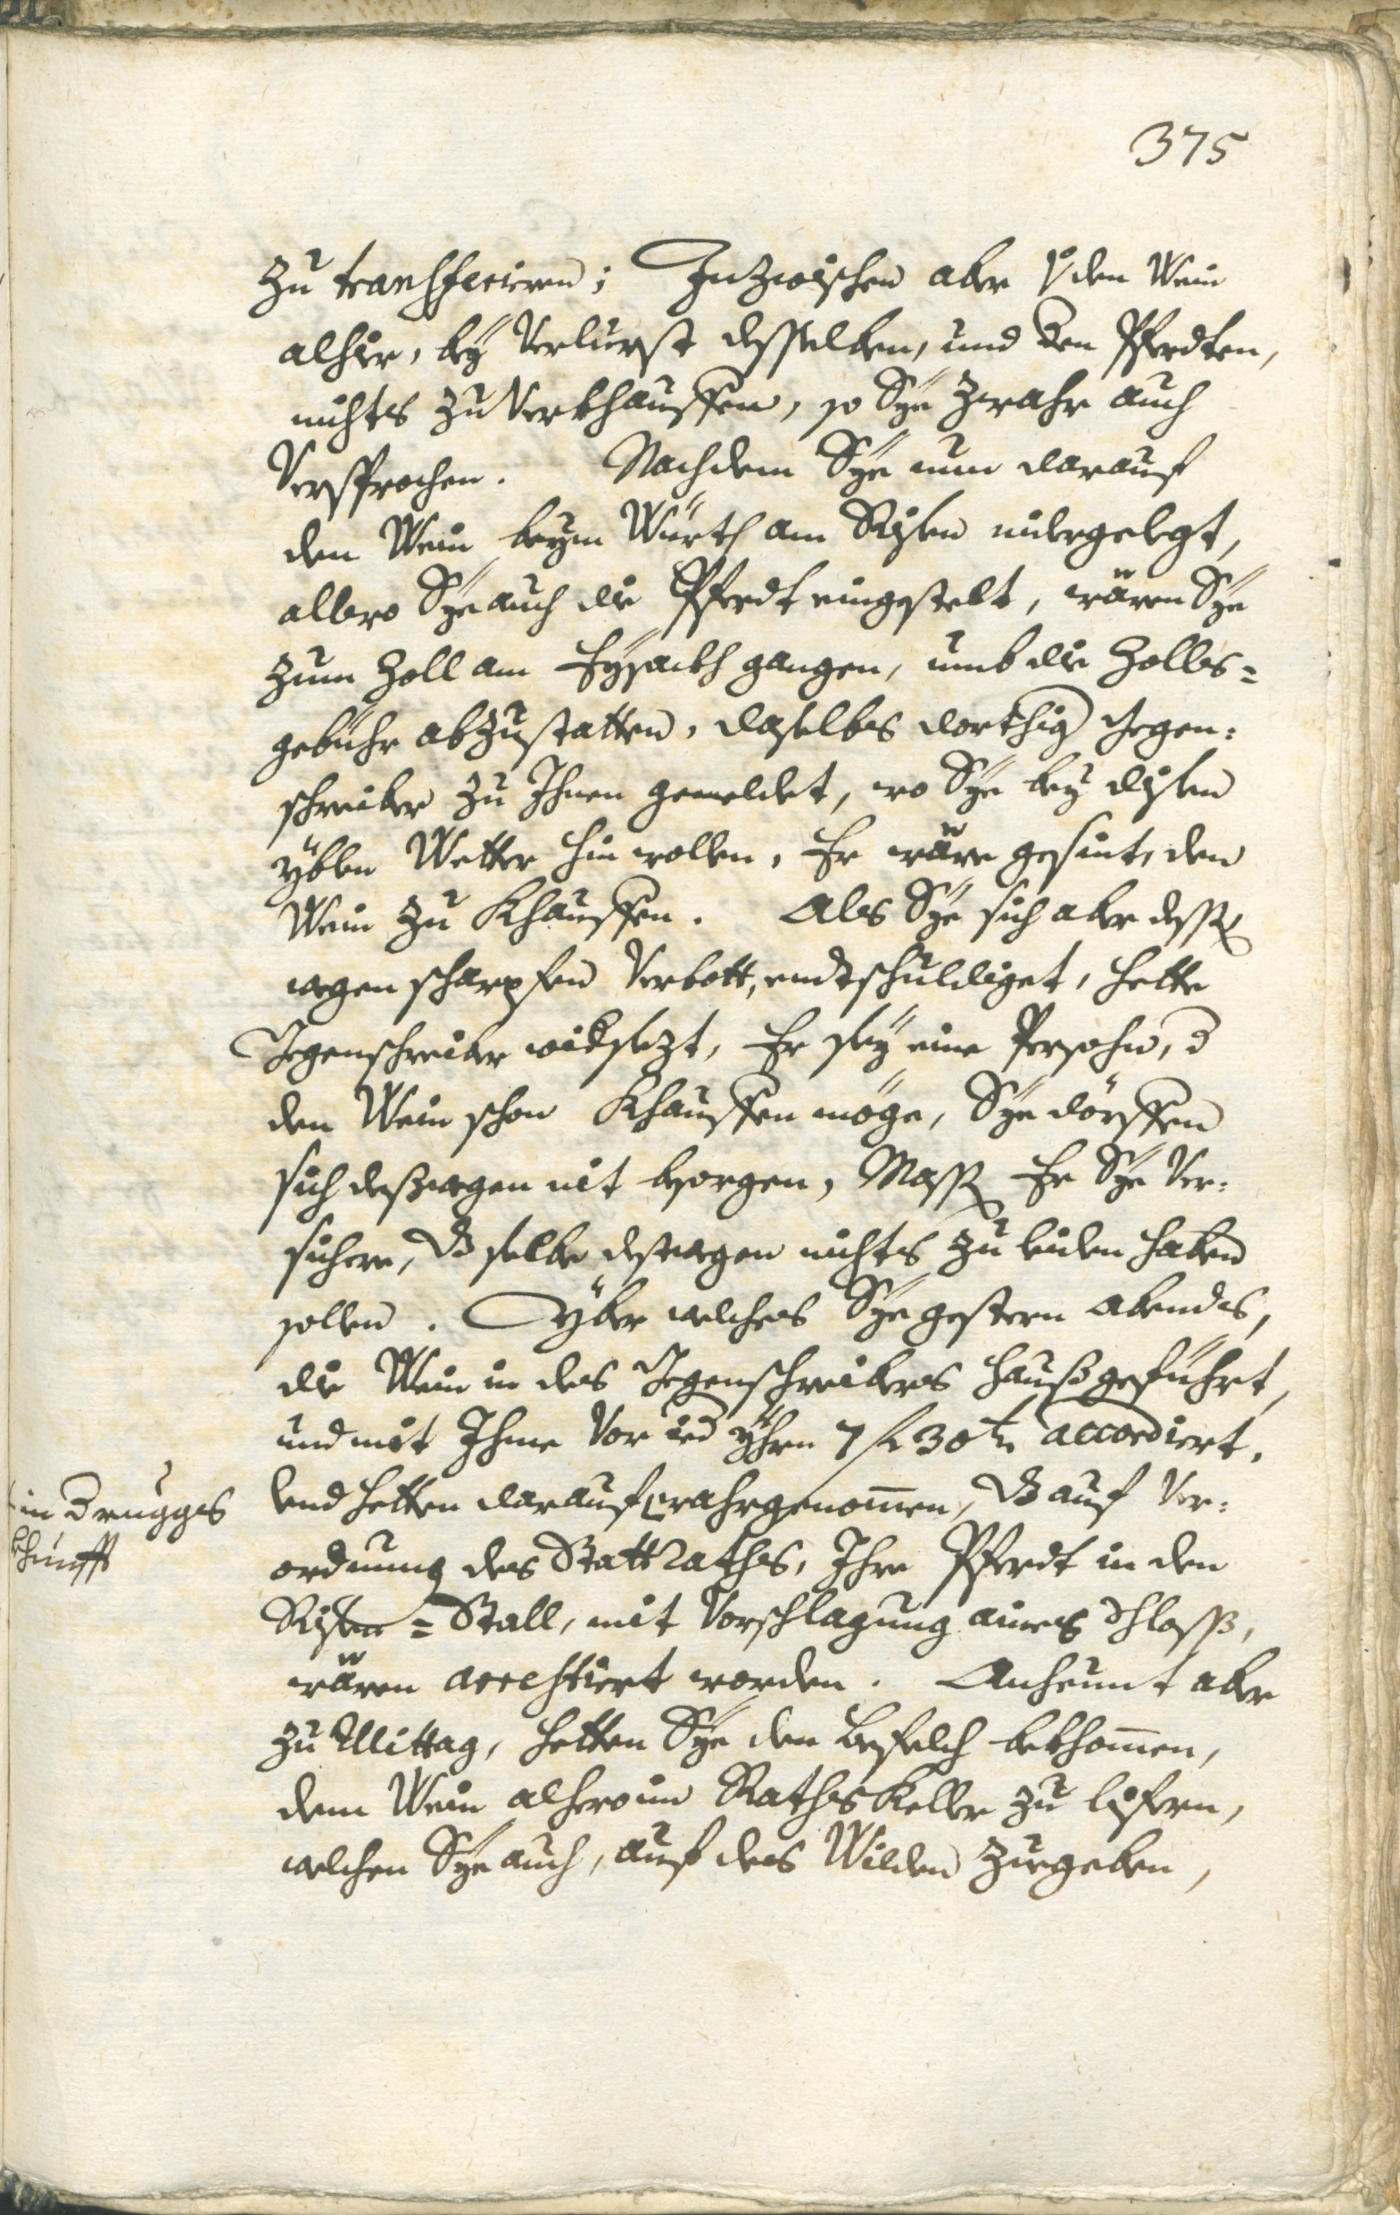 375
zu transferieren; Inzwischen aber den Wein
alhier, bey Verlurst desselben, und den Pferdten,
nichts zu Verkhauffen, so Sye zwahr auch
Versprochen. Nachdem Sye nun darauf
den Wein beym Würth am Risen nidergelegt,
allwo Sye auch die Pferdt eingestelt, wären Sye
zum Zoll am Eysackh gangen, umb die Zolls=
gebühr abzustatten, daselbs dorthig Gegen:
schreiber zu Ihnen gemeldet, wo Sye bey disen
üblen Wetter hin wollen, Er wäre gesint, den
Wein zu Khauffen. Als Sye sich aber dessen
wegen scharpfen Verbott, endtschuldiget, hette
Gegenschreiber widersezt, Er sey eine Persohn, d
den Wein schon Khauffen möge, Sye dörffen
sich deßwegen nit besorgen, Massen Er Sye Ver:
sichere, dß selbe destwegen nichts zu leiden haben
sollen. Yber welches Sye gestern Abends,
die Wein in des Gegenschreibers Hauß geführt,
und mit Ihme Vor ied Yhrn 7 f 30 kr accordiert.
in Brugges
khünfft
Und hetten darauf wahrgenomen, dß auf Ver:
ordnung des Statt Raths, Ihre Pferdt in den
Risen=Stall, mit Vorschlagung aines Schloss,
wären arrestiert worden. Anheunt aber
zu Mittag, hetten Sye den Befelch bekhomen,
dem Wein alhero im Rathskeller zu lifern,
welchen Sye auch, auf des Wilden zuegeben,